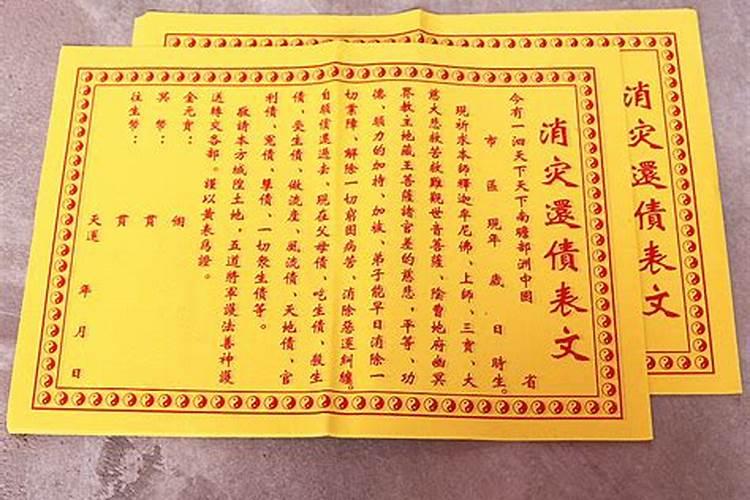 消灾還債表文
今有一泗天下天下南瞻部洲中國 省
市 區 現年 歲 日 時生。
現祈求本師釋迦牟尼佛、上師、三寶、大
慈大悲救苦救難觀世音菩薩、陰曹地府幽冥
界教主地藏王菩薩諸官差的慈悲，平等、功
德、願力的加持、加被、弟子能早日消除一
切業障、解除一切窮困病苦、消除惡運糾纏。
自願償還過去、現在父母債、吃生債、殺生
債、受生債、做流產、風流債、天地債、官
利債、冤債、孽債、一切衆生債等。
敬請本方城隍土地，五道將軍護法善神護
送轉交各部。謹以黄表爲證。
金元寶： 個
冥 幣： 貫
往生幣： 貫
天運 年 月 日
消灾還債表文